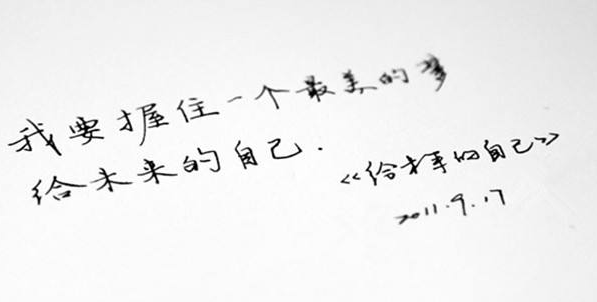 我要握住一个最美的梦
给未来的自己.
《给未来的自己》
2011.9.17